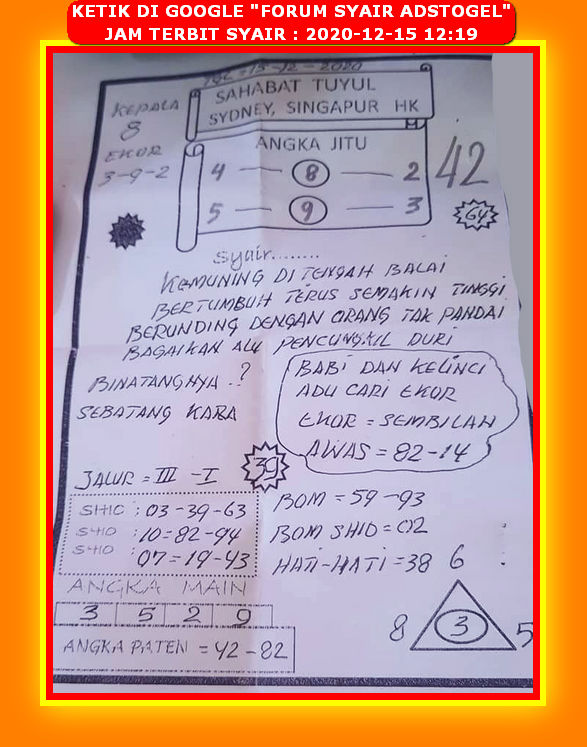 KETIK DI GOOGLE "FORUM SYAIR ADSTOGEL"
JAM TERBIT SYAIR : 2020-12-15 12:19
TGL = 15-12-2020
SAHABAT TUYUL
SYDNEY, SINGAPUR HK
KEPALA
8
EKOR
3-9-2
ANGKA JITU
4 — 8 — 2
5 — 9 — 3
42
64
Syair........
KEMUNING DI TENGAH BALAI
BERTUMBUH TERUS SEMAKIN TINGGI
BERUNDING DENGAN ORANG TAK PANDAI
BAGAIKAN ALU PENCUNGKIL DURI
BINATANGNYA . ?
SEBATANG KARA
BABI DAN KELINCI
ADU CARI EKOR
EKOR = SEMBILAN
AWAS = 82-14
39
JALUR = III - I
SHIO : 03-39-63
SHIO : 10=82-94
SHIO : 07=19-43
BOM = 59-93
BOM SHIO = 02
HATI-HATI = 38
6
8 3 5
ANGKA MAIN
3 5 2 9
ANGKA PATEN = 42-82